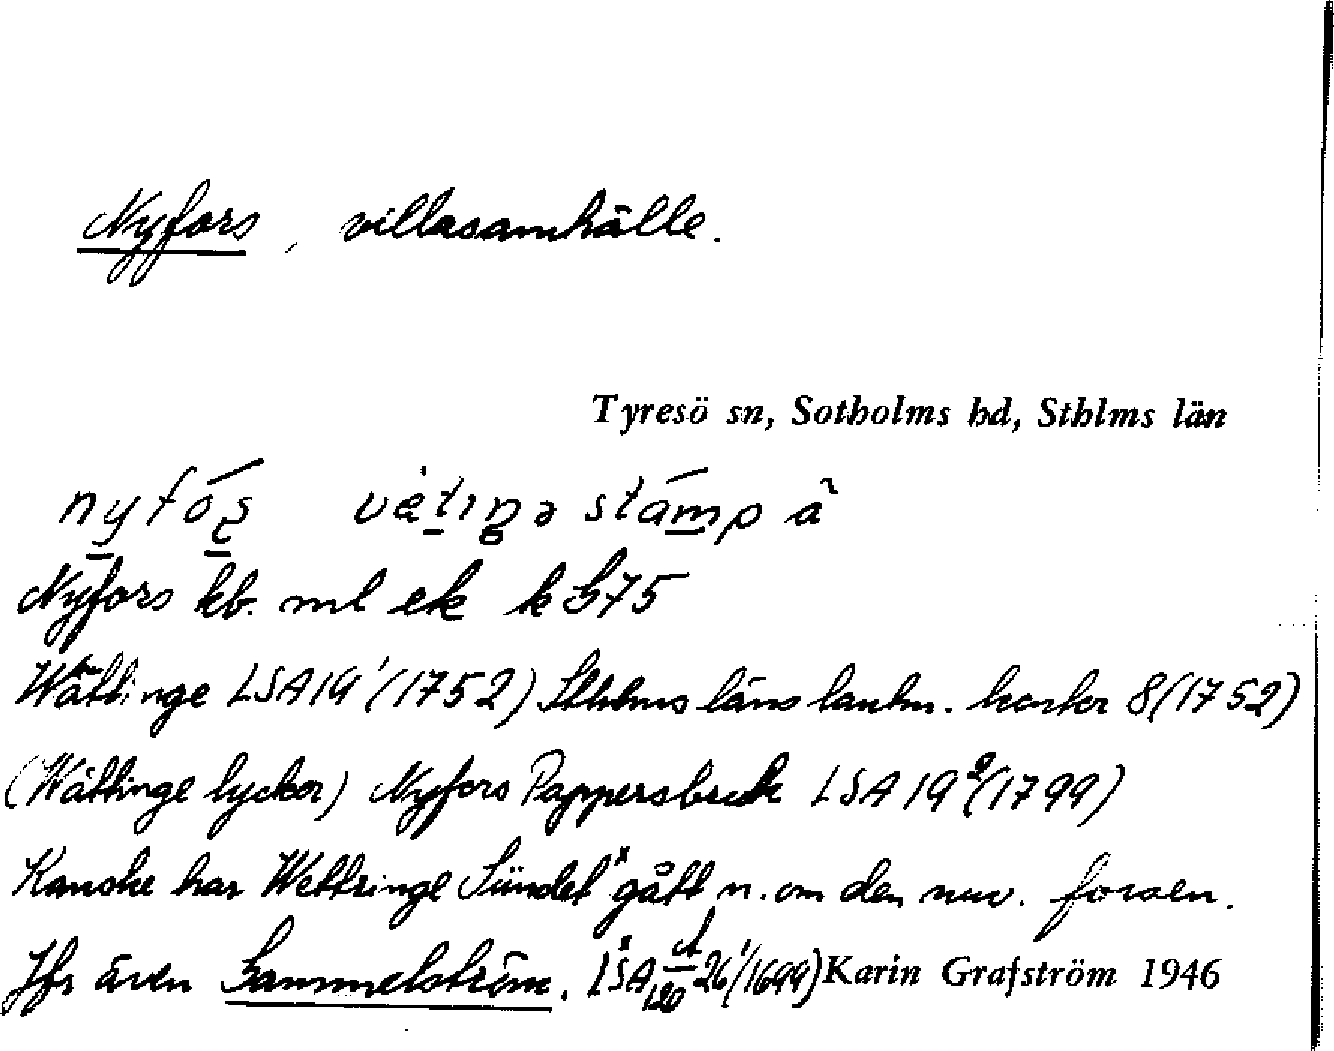 Nyfors, villasamhälle.
Tyresö sn, Sotholms hd, Sthlms län
Nyfors kb. ml ek k 575
Wättinge LSA 19¹ (1752) Sthlms läns lantm. kartor 8 (1752)
(Wättinge lyckor) Nyfors Pappersbruk LSA 19² (1799)
Kanske har Wettringe Sündet ˣ gått n. om den nuv. forsen.
Jfr även Gammelström. ˣ LSA A/120 26¹ (1699) Karin Grafström 1946